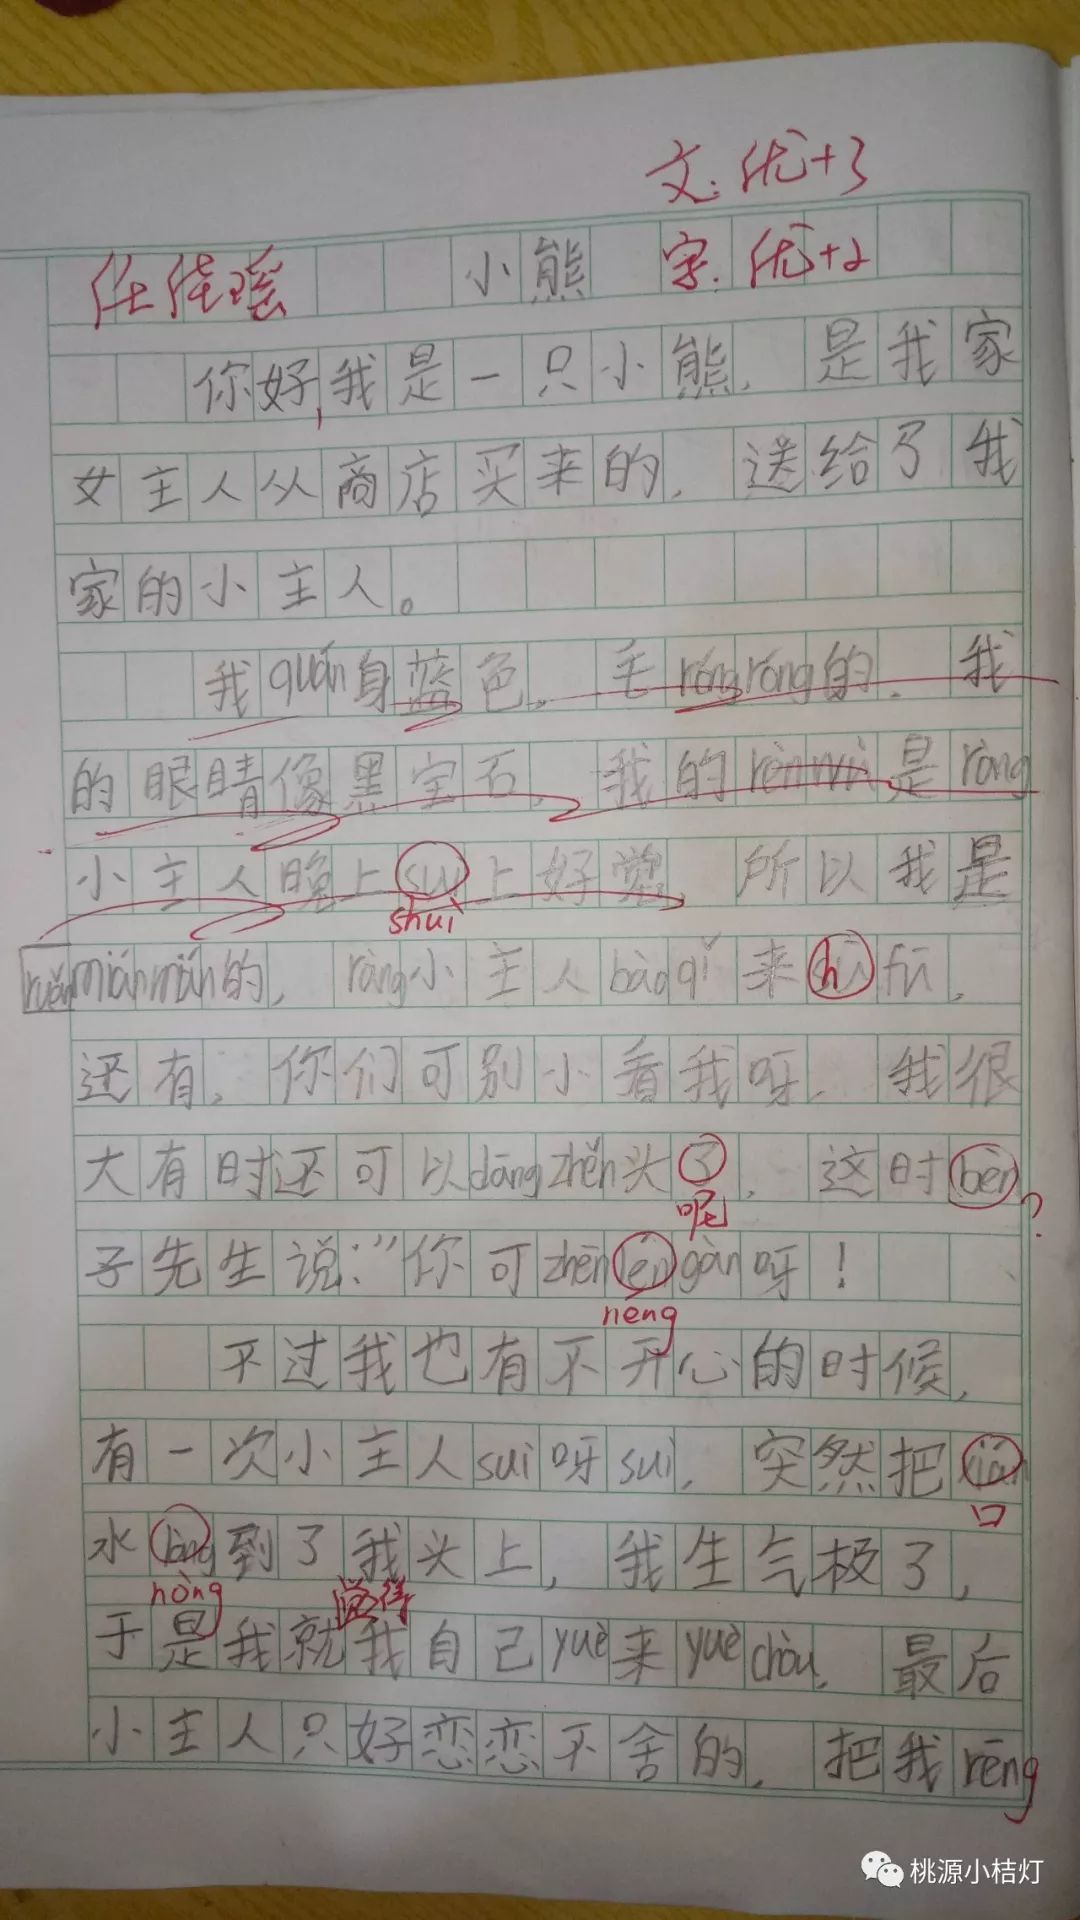 文:优+3
任佳瑶 小熊 字:优+2
你好,我是一只小熊,是我家
女主人从商店买来的,送给了我
家的小主人。
我quán身蓝色,毛róngróng的,我
的眼睛像黑宝石,我的rènwù是ràng
小主人晚上suì上好觉,所以我是
shuì
ruǎnmiánmián的,ràng小主人bàoqǐ来shūfū,
还有,你们可别小看我呀,我很
大有时还可以dāngzhěn头了,这时bèn
呢
子先生说:“你可zhēnléngàn呀!
néng
不过我也有不开心的时候,
有一次小主人suì呀suì,突然把
口
水lòng到了我头上,我生气极了,
nòng 觉得
于是我就我自己yuè来yuèchòu,最后
小主人只好恋恋不舍的,把我rēng
桃源小桔灯